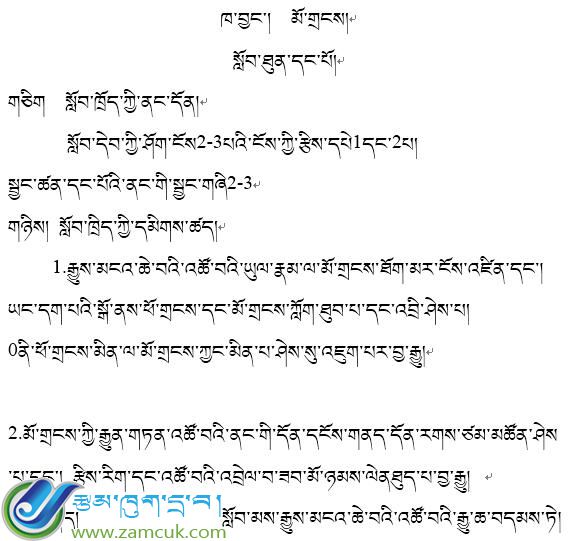 ཁ་བྱང་། མོ་གྲངས།
སློབ་ཐུན་དང་པོ།
གཅིག སློབ་ཁྲིད་ཀྱི་ནང་དོན།
སློབ་དེབ་ཀྱི་ཤོག་ངོས2-3པའི་ངོས་ཀྱི་རྩིས་དཔེ1དང་2པ།
སྦྱང་ཚན་དང་པོའི་ནང་གི་སྦྱང་གཞི2-3
གཉིས། སློབ་ཁྲིད་ཀྱི་དམིགས་ཚད།
1.རྒྱུས་མངའ་ཆེ་བའི་འཚོ་བའི་ཡུལ་རྣམ་ལ་མོ་གྲངས་ཐོག་མར་ངོས་འཛིན་དང་།
ཡང་དག་པའི་སྒོ་ནས་ཕོ་གྲངས་དང་མོ་གྲངས་ཀློག་ཐུབ་པ་དང་འབྲི་ཤེས་པ།
0ནི་ཕོ་གྲངས་མིན་ལ་མོ་གྲངས་ཀྱང་མིན་པ་ཤེས་སུ་འཇུག་པར་བྱ་རྒྱུ།
2.མོ་གྲངས་ཀྱི་རྒྱུན་གཏན་འཚོ་བའི་ནང་གི་དོན་དངོས་གནད་དོན་རགས་ཙམ་མཚོན་ཤེས
་པ་དང་། རྩིས་རིག་དང་འཚོ་བའི་འབྲེལ་བ་ཟབ་མོ་ཉམས་ལེན་ཐུད་པ་བྱ་རྒྱུ།
རྩམ་ཁུག་དྲ་བ།
སློབ་མས་རྒྱུས་མངའ་ཆེ་བའི་འཚོ་བའི་རྒྱུ་ཆ་བདམས་ཏེ།
www.zamcuk.com